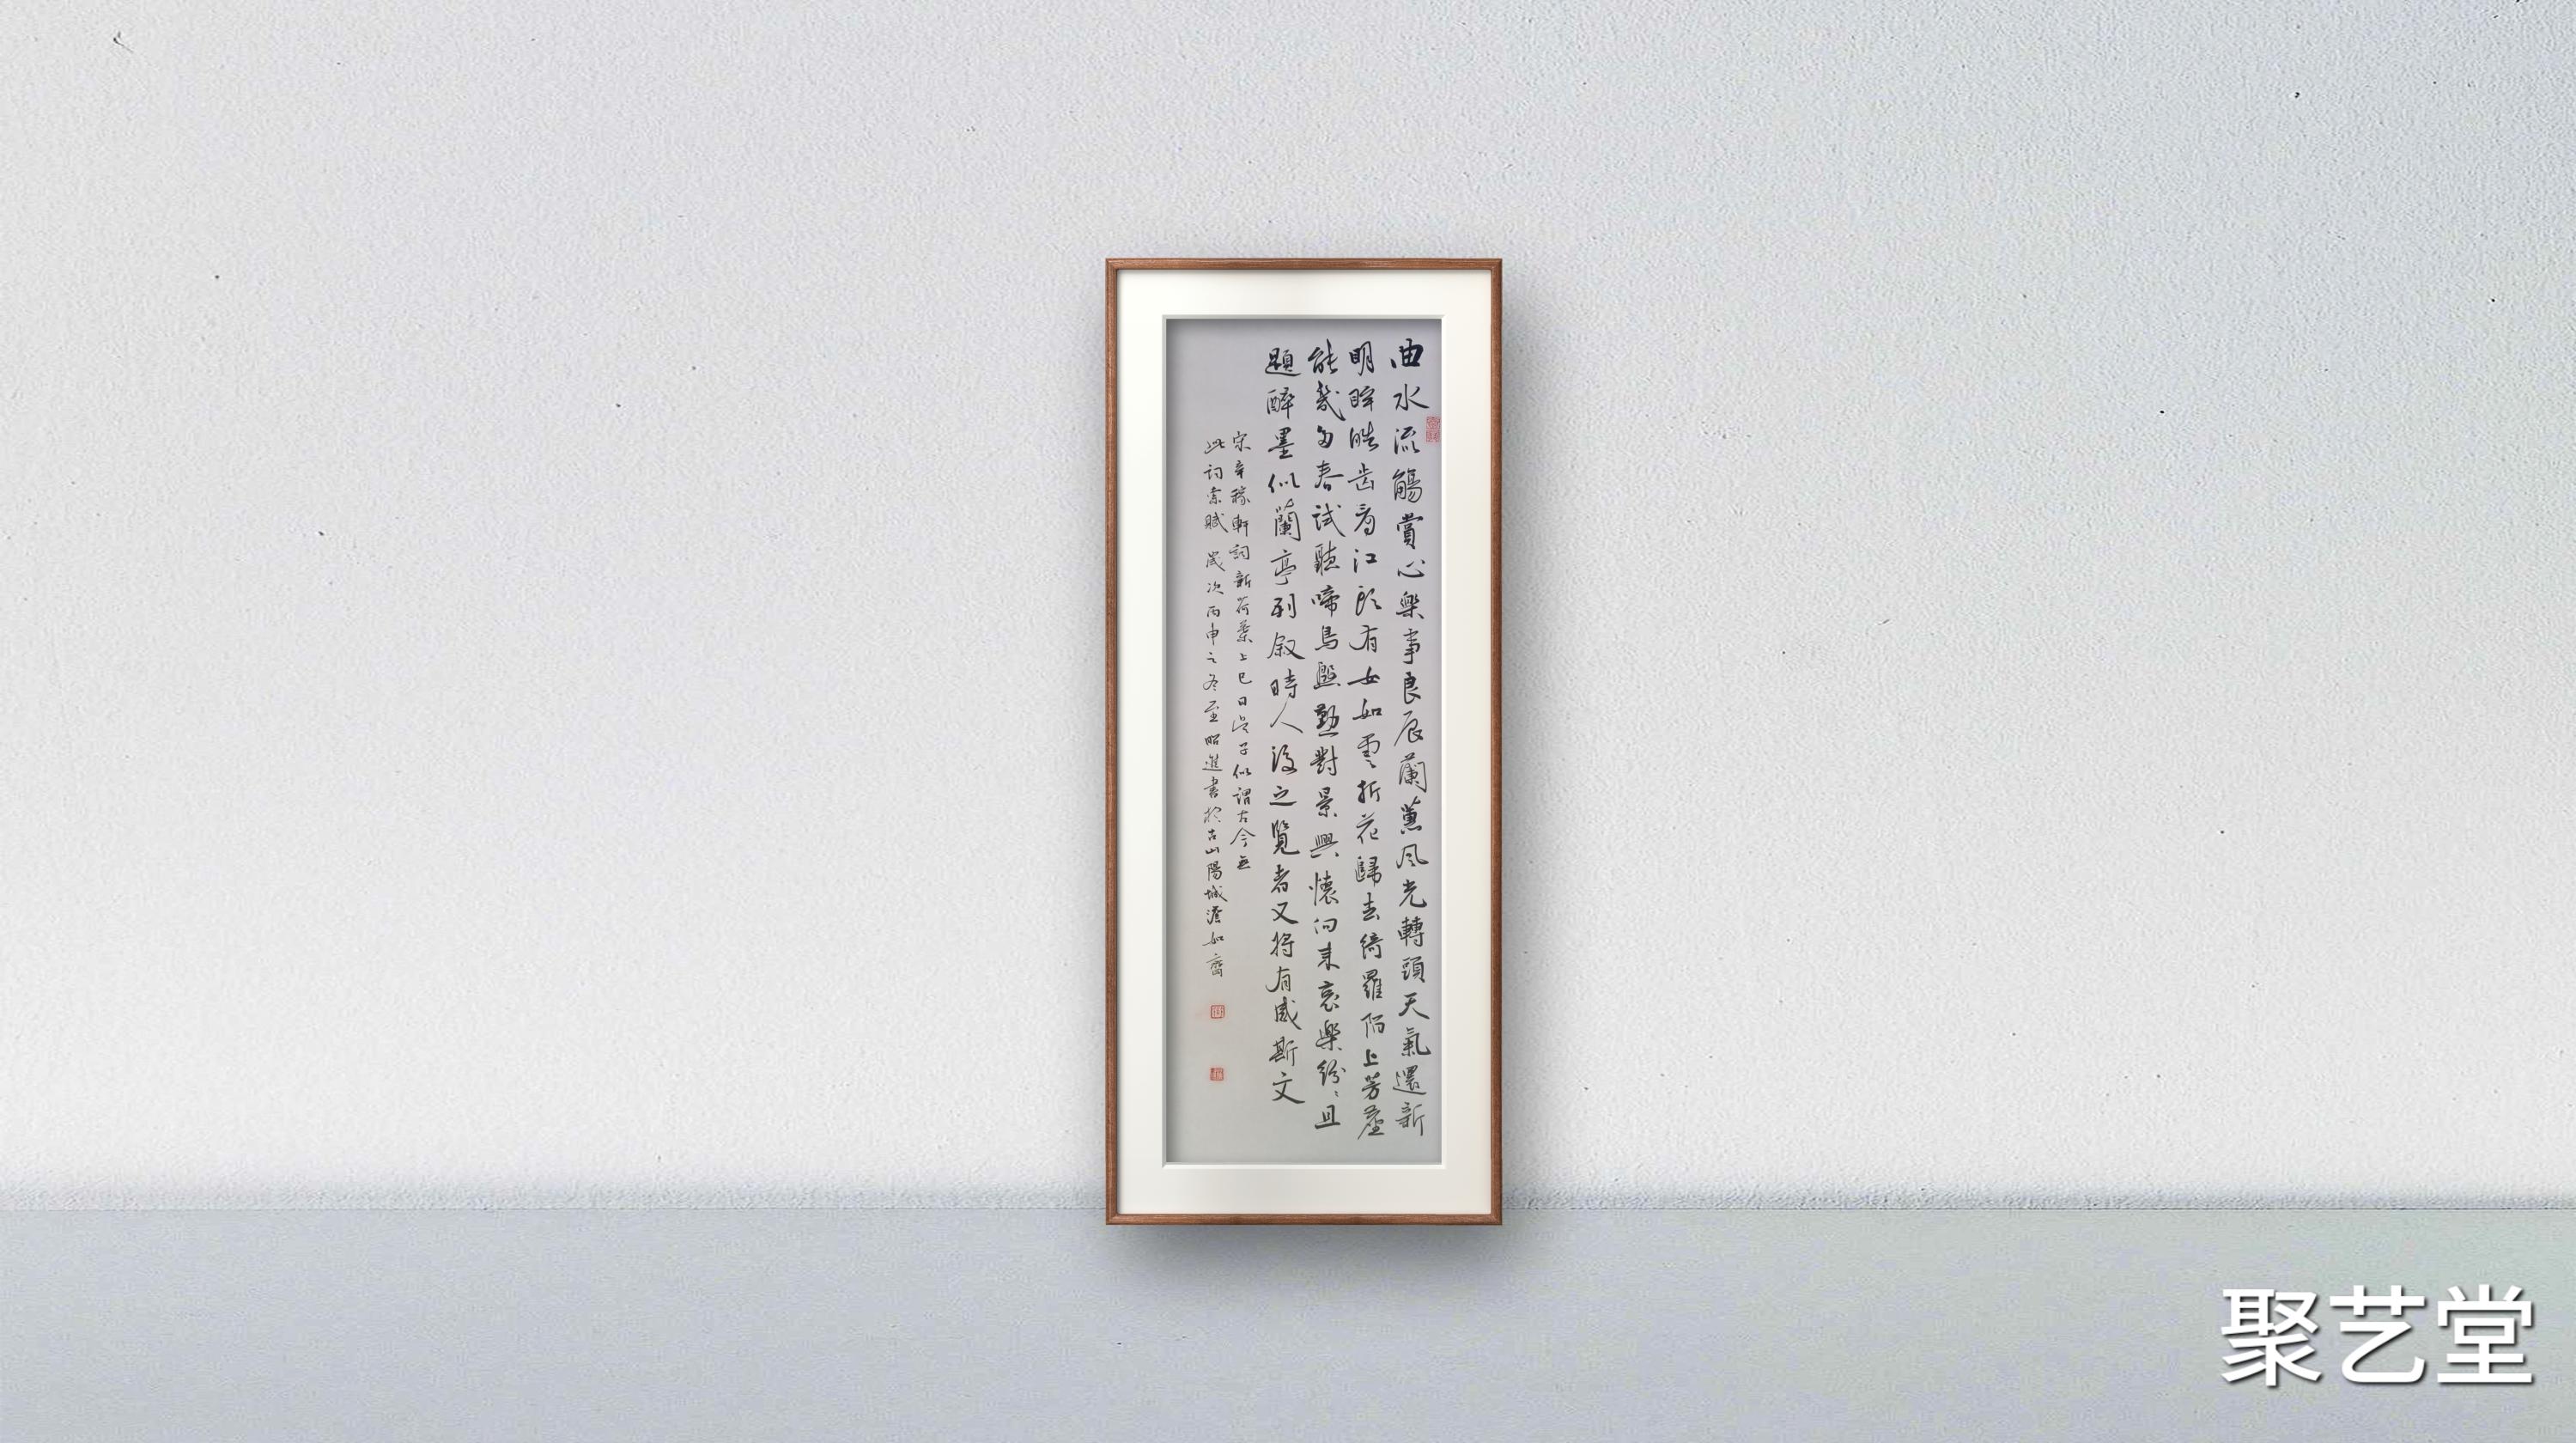 曲水流觴賞心樂事良辰蘭蕙风光轉頭天氣還新
明眸皓齿看江头有女如雲折花歸去綺羅陌上芳塵
能幾多春试聽啼鳥慇勤對景興懷向来哀樂紛〻且
題醉墨似蘭亭列叙時人後之覽者又将有感斯文
宋辛稼軒詞新荷葉上巳日吴子似謂古今無
此词索賦 歲次丙申之冬至昭進書於古山陽城澹如齋
聚艺堂